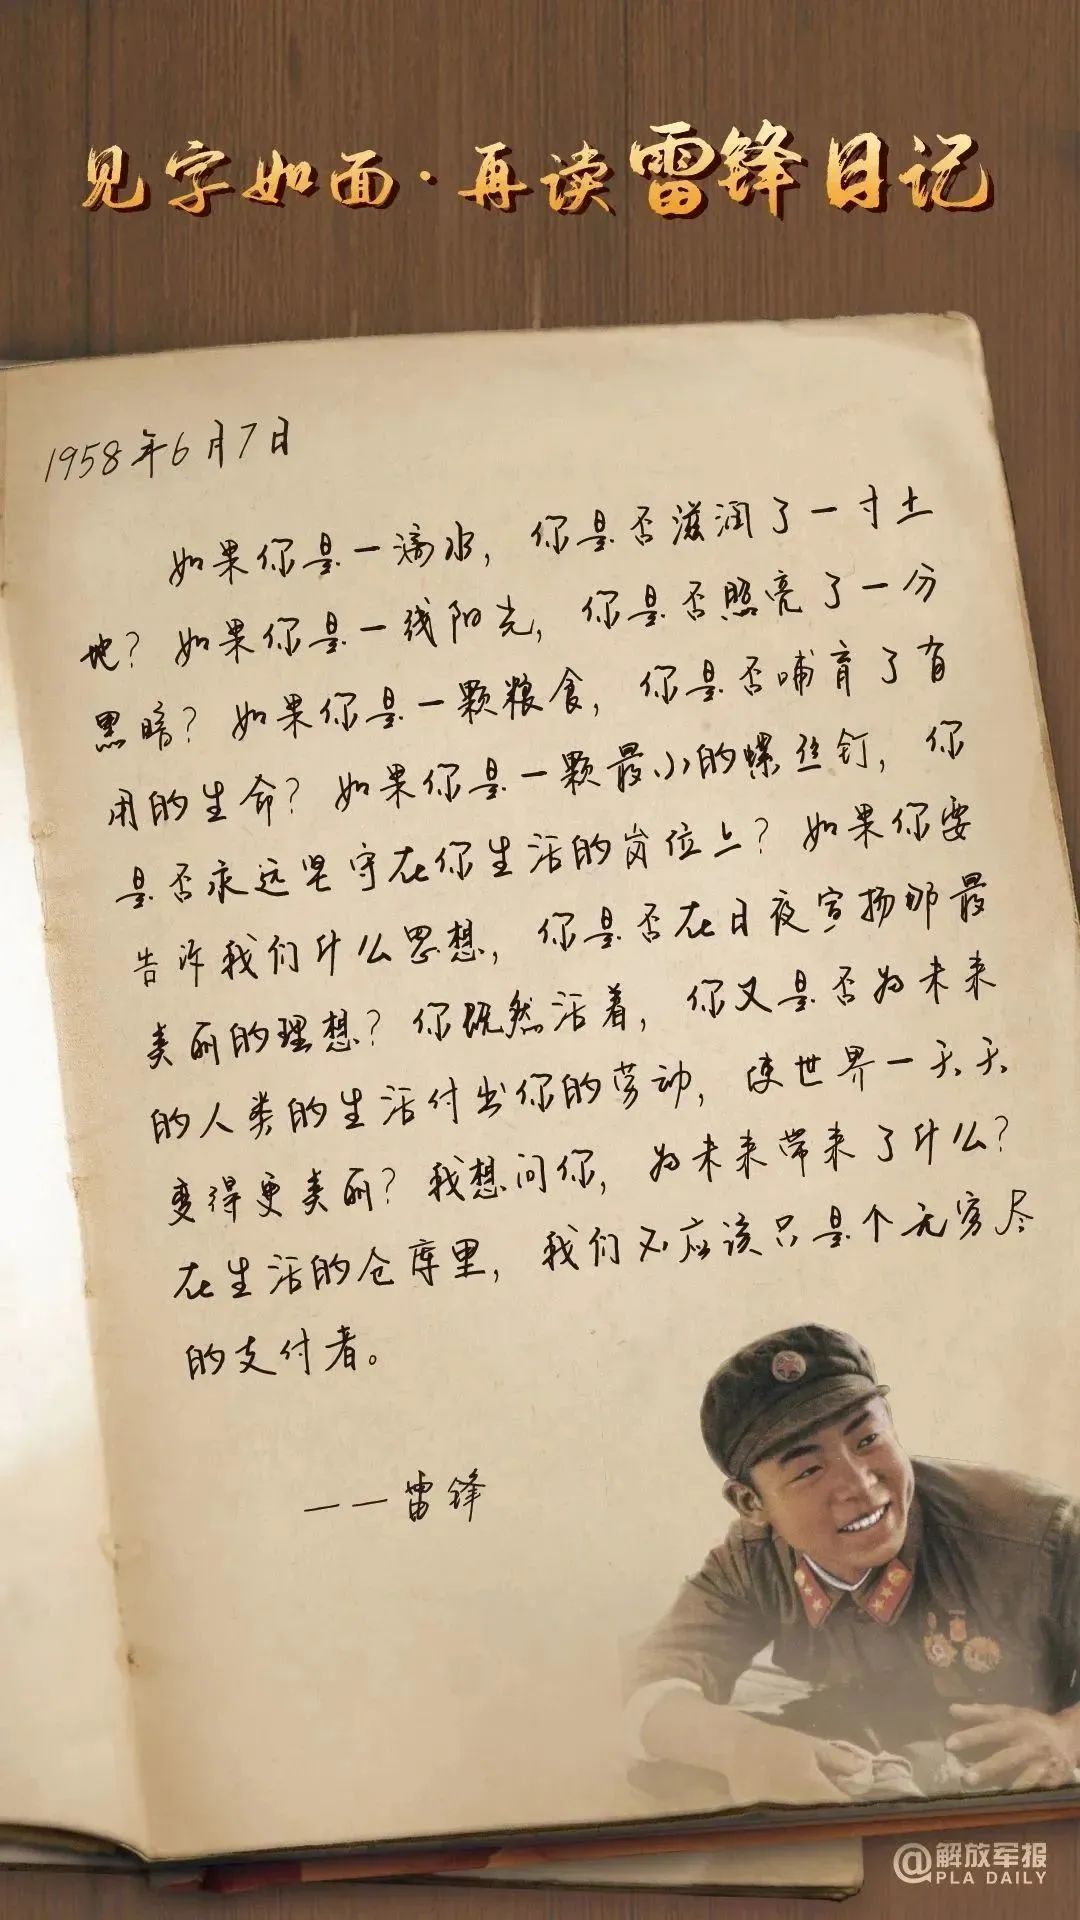 见字如面·再读雷锋日记
1958年6月7日
如果你是一滴水，你是否滋润了一寸土
地？如果你是一线阳光，你是否照亮了一分
黑暗？如果你是一颗粮食，你是否哺育了有
用的生命？如果你是一颗最小的螺丝钉，你
是否永远坚守在你生活的岗位上？如果你要
告诉我们什么思想，你是否在日夜宣扬那最
美丽的理想？你既然活着，你又是否为未来
的人类的生活付出你的劳动，使世界一天天
变得更美丽？我想问你，为未来带来了什么？
在生活的仓库里，我们不应该只是个无穷尽
的支付者。
——雷锋
@解放军报
PLA DAILY